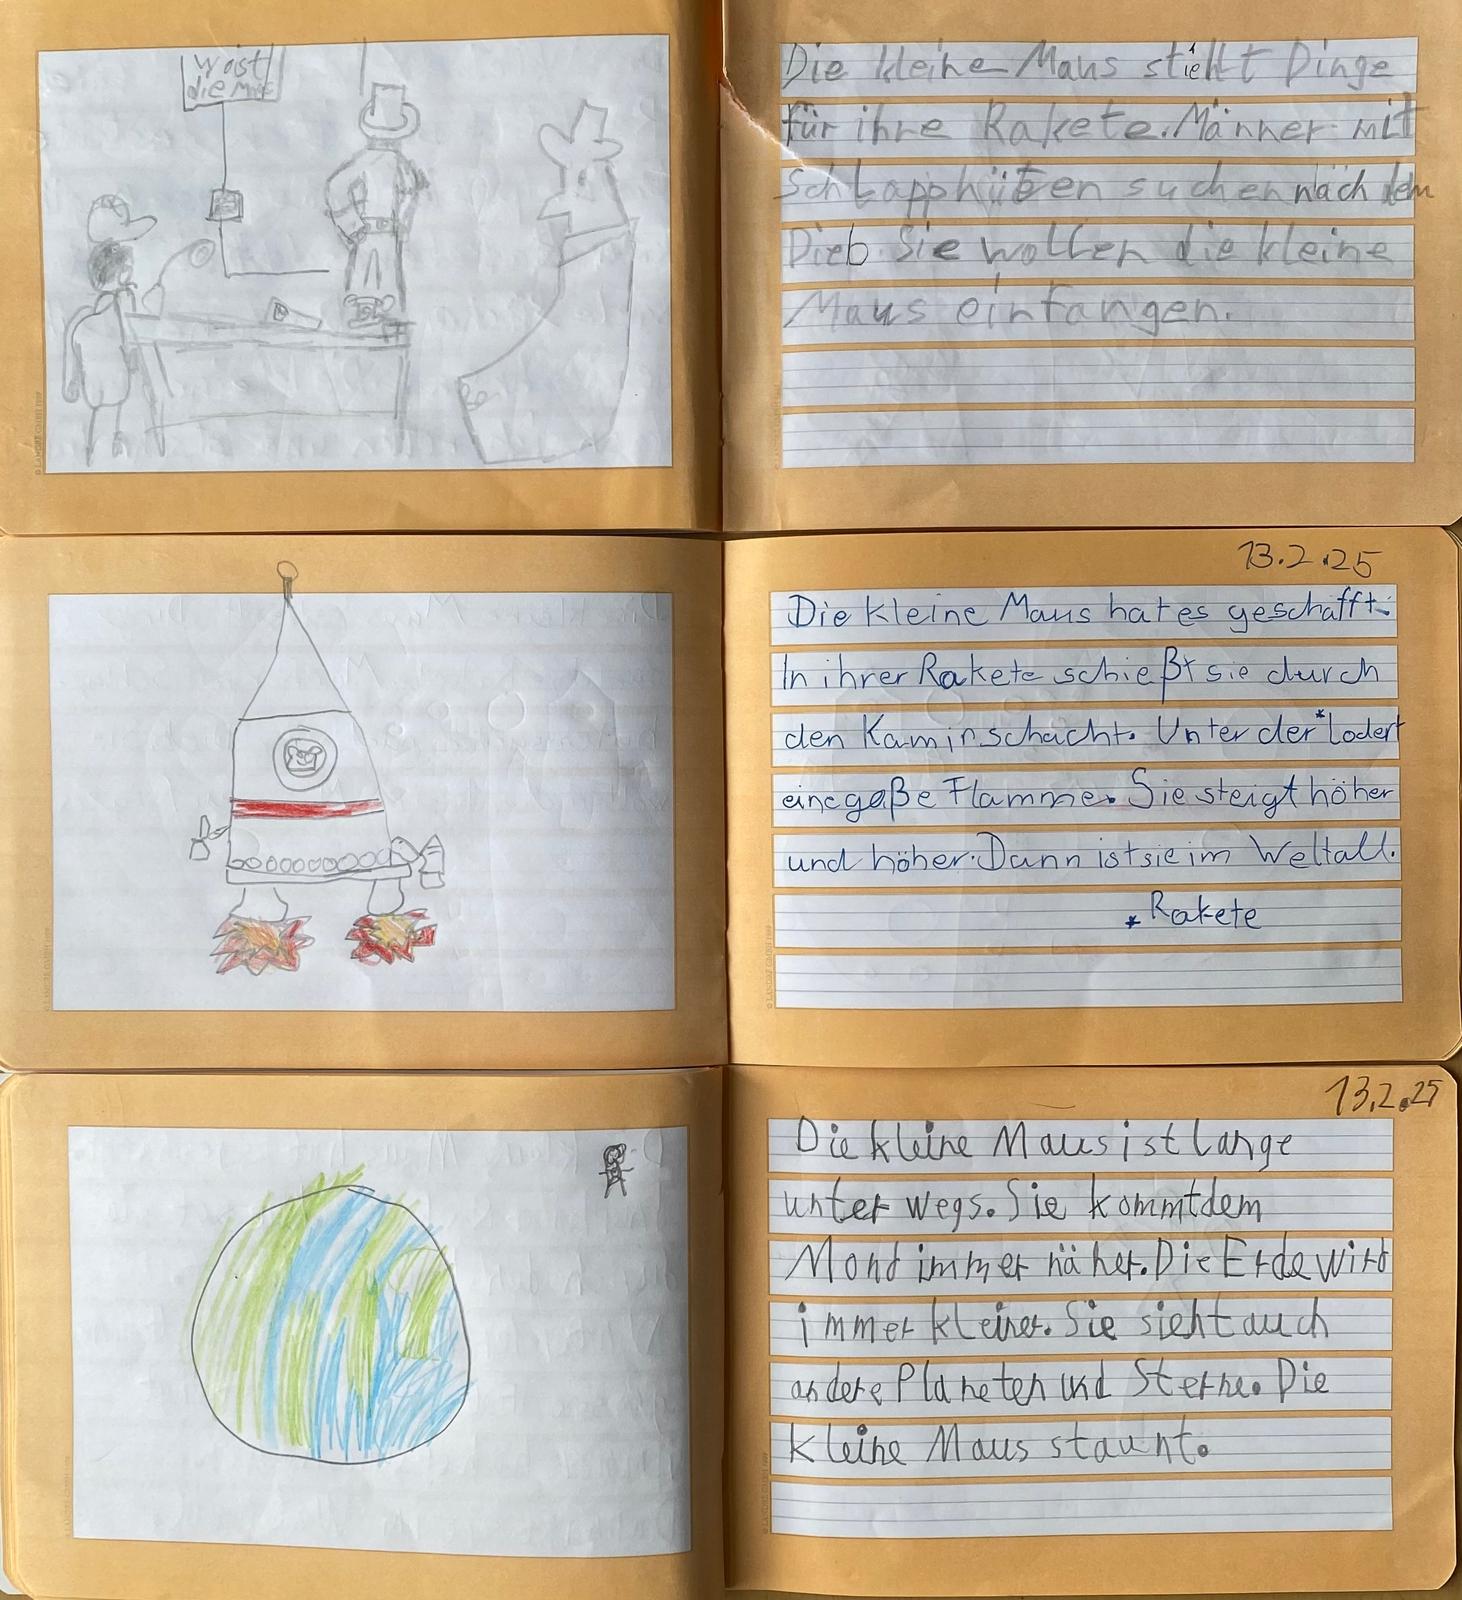 Wo ist
die Maus
Die kleine Maus stiehlt Dinge
für ihre Rakete. Männer mit
Schlapphüten suchen nach dem
Dieb. Sie wollen die kleine
Maus einfangen.
13.2.25
Die kleine Maus hat es geschafft.
In ihrer Rakete schießt sie durch
den Kaminschacht. Unter der * lodert
eine goße Flamme. Sie steigt höher
und höher. Dann ist sie im Weltall.
* Rakete
13.2.25
Die kleine Maus ist lange
unter wegs. Sie kommt dem
Mond immer näher. Die Erde wird
immer kleiner. Sie sieht auch
andere Planeten und Sterne. Die
kleine Maus staunt.